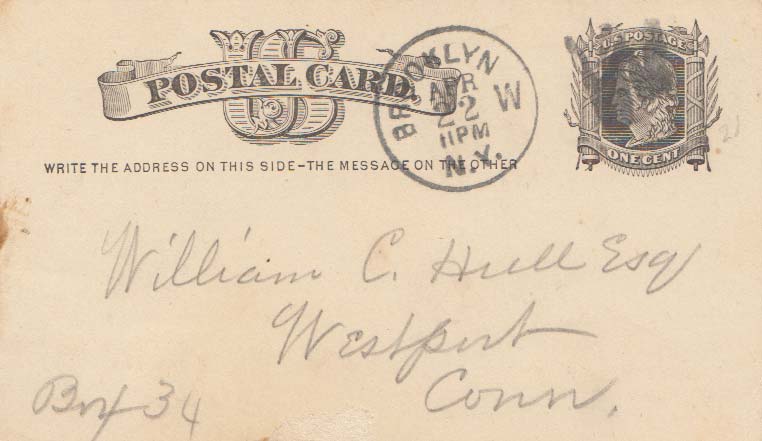 U.S. POSTAGE
US
POSTAL CARD.
BROOKLYN
APR
22 W
11PM
N.Y.
WRITE THE ADDRESS ON THIS SIDE-THE MESSAGE ON THE OTHER
ONE CENT
21
William C. Hull Esq
Westport
Conn.
Box 34